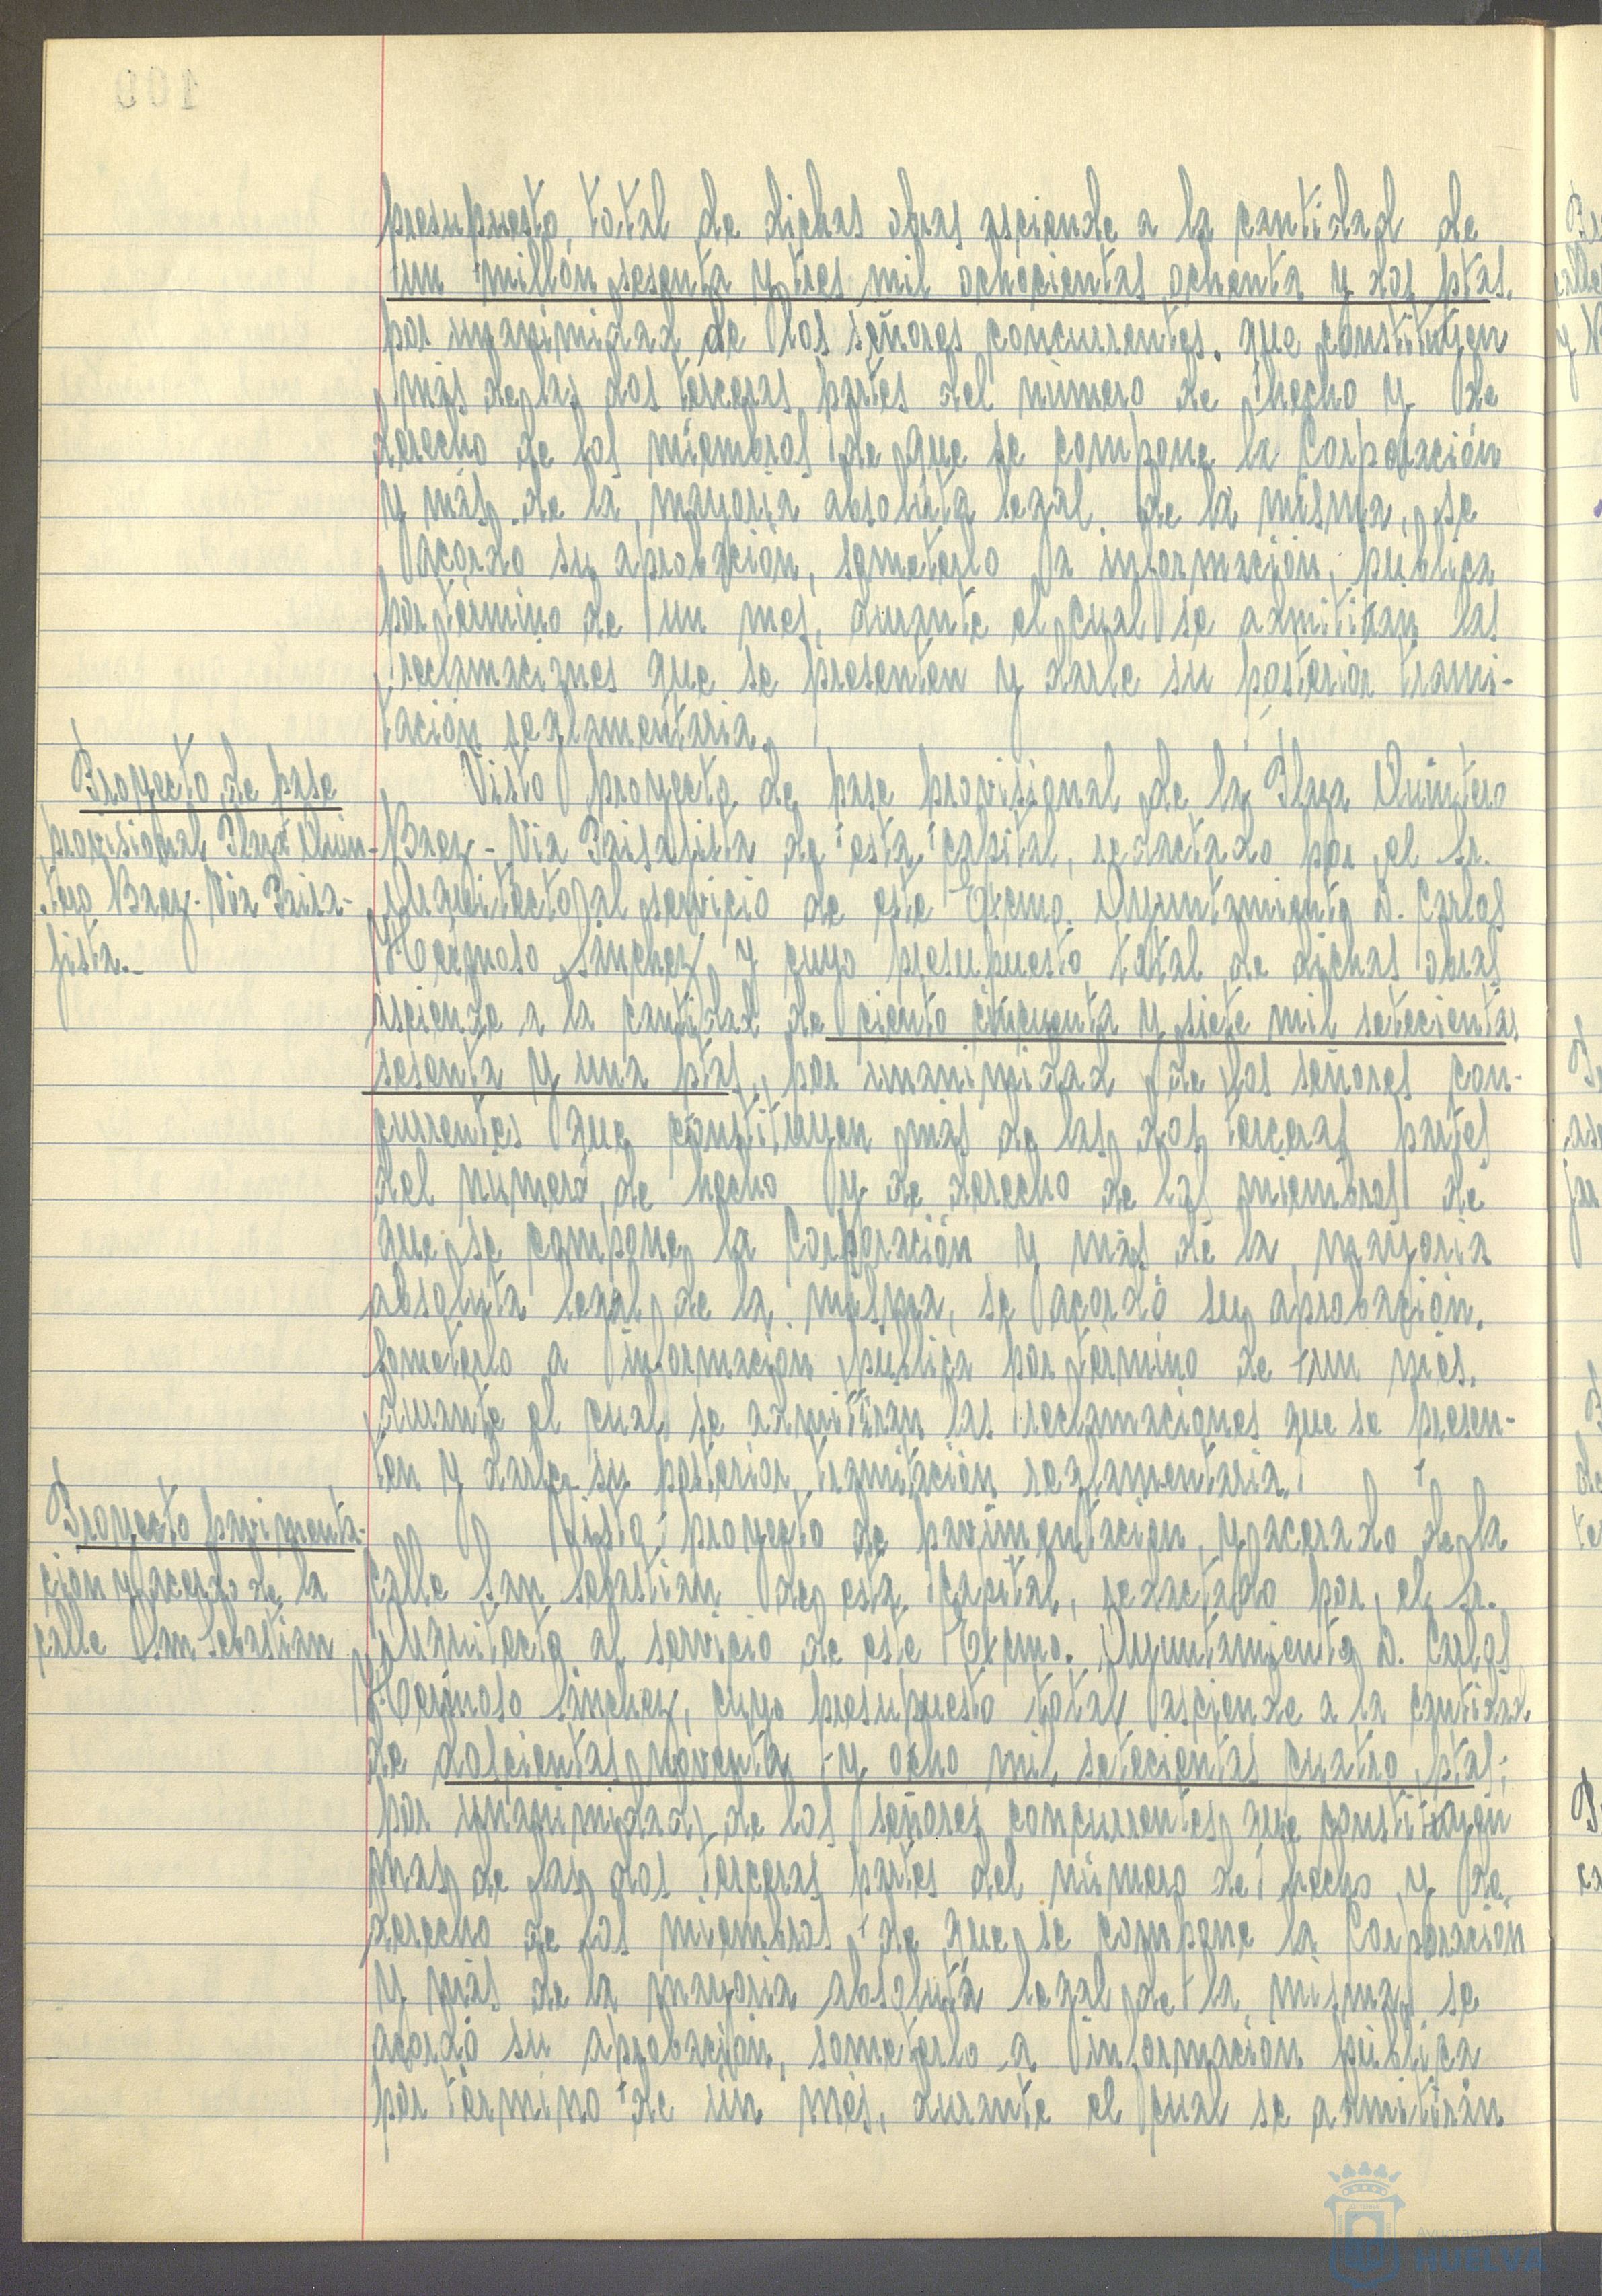 presupuesto total de dichas obras asciende a la cantidad de
un millón sesenta y tres mil ochocientas ochenta y dos ptas.
por unanimidad de los señores concurrentes, que constituyen
más de las dos terceras partes del número de hecho y de
derecho de los miembros de que se compone la Corporación
y más de la mayoria absoluta legal de la misma, se
acordó su aprobación, someterlo a información pública
por término de un mes, durante el cual se admitirán las
reclamaciones que se presenten y darle su posterior trami-
tación reglmentaria.
Proyecto de pase
provisional Plaza Quin-
tero Baez - Via Paisa-
jista.-
Visto proyecto de pase provisional de la Plaza Quintero
Baez - Via Paisajista de esta capital, redactado por el Sr.
Arquitecto al servicio de este Excmo. Ayuntamiento D. Carlos
Hermoso Sánchez y cuyo presupuesto total de dichas obras
asciende a la cantidad de ciento cincuenta y siete mil setecientas
sesenta y una ptas., por unanimidad de los señores con-
currentes que constituyen más de las dos terceras partes
del número de hecho y de derecho de los miembros de
que se compone la Corporación y más de la mayoria
absoluta legal de la misma, se acordó su aprobación,
someterlo a información pública por término de un mes,
durante el cual se admitirán las reclamaciones que se presen-
ten y darle su posterior tramitación reglamentaria.
Proyecto pavimenta-
ción y acerado de la
calle San Sebastian
Visto proyecto de pavimentación y acerado de la
calle San Sebastian de esta capital, redactado por el Sr.
Arquitecto al servicio de este Excmo. Ayuntamiento D. Carlos
Hermoso Sánchez, cuyo presupuesto total asciende a la cantidad
de doscientas noventa y ocho mil setecientas cuatro ptas;
por unanimidad de los señores concurrentes que constituyen
mas de las dos terceras partes del número de hecho y de
derecho de los miembros de que se compone la Corporación
y más de la mayoria absoluta legal de la misma, se
acordó su aprobación, someterlo a información pública
por término de un més, durante el cual se admitirán
Ayuntamiento de
HUELVA